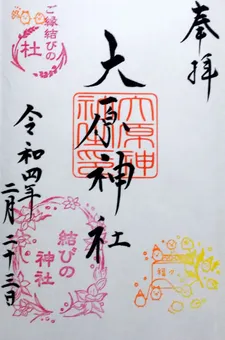 奉拝
大原神社
大原神社印
ご縁結びの
社
令和四年
二月二十三日
結びの
神社
福